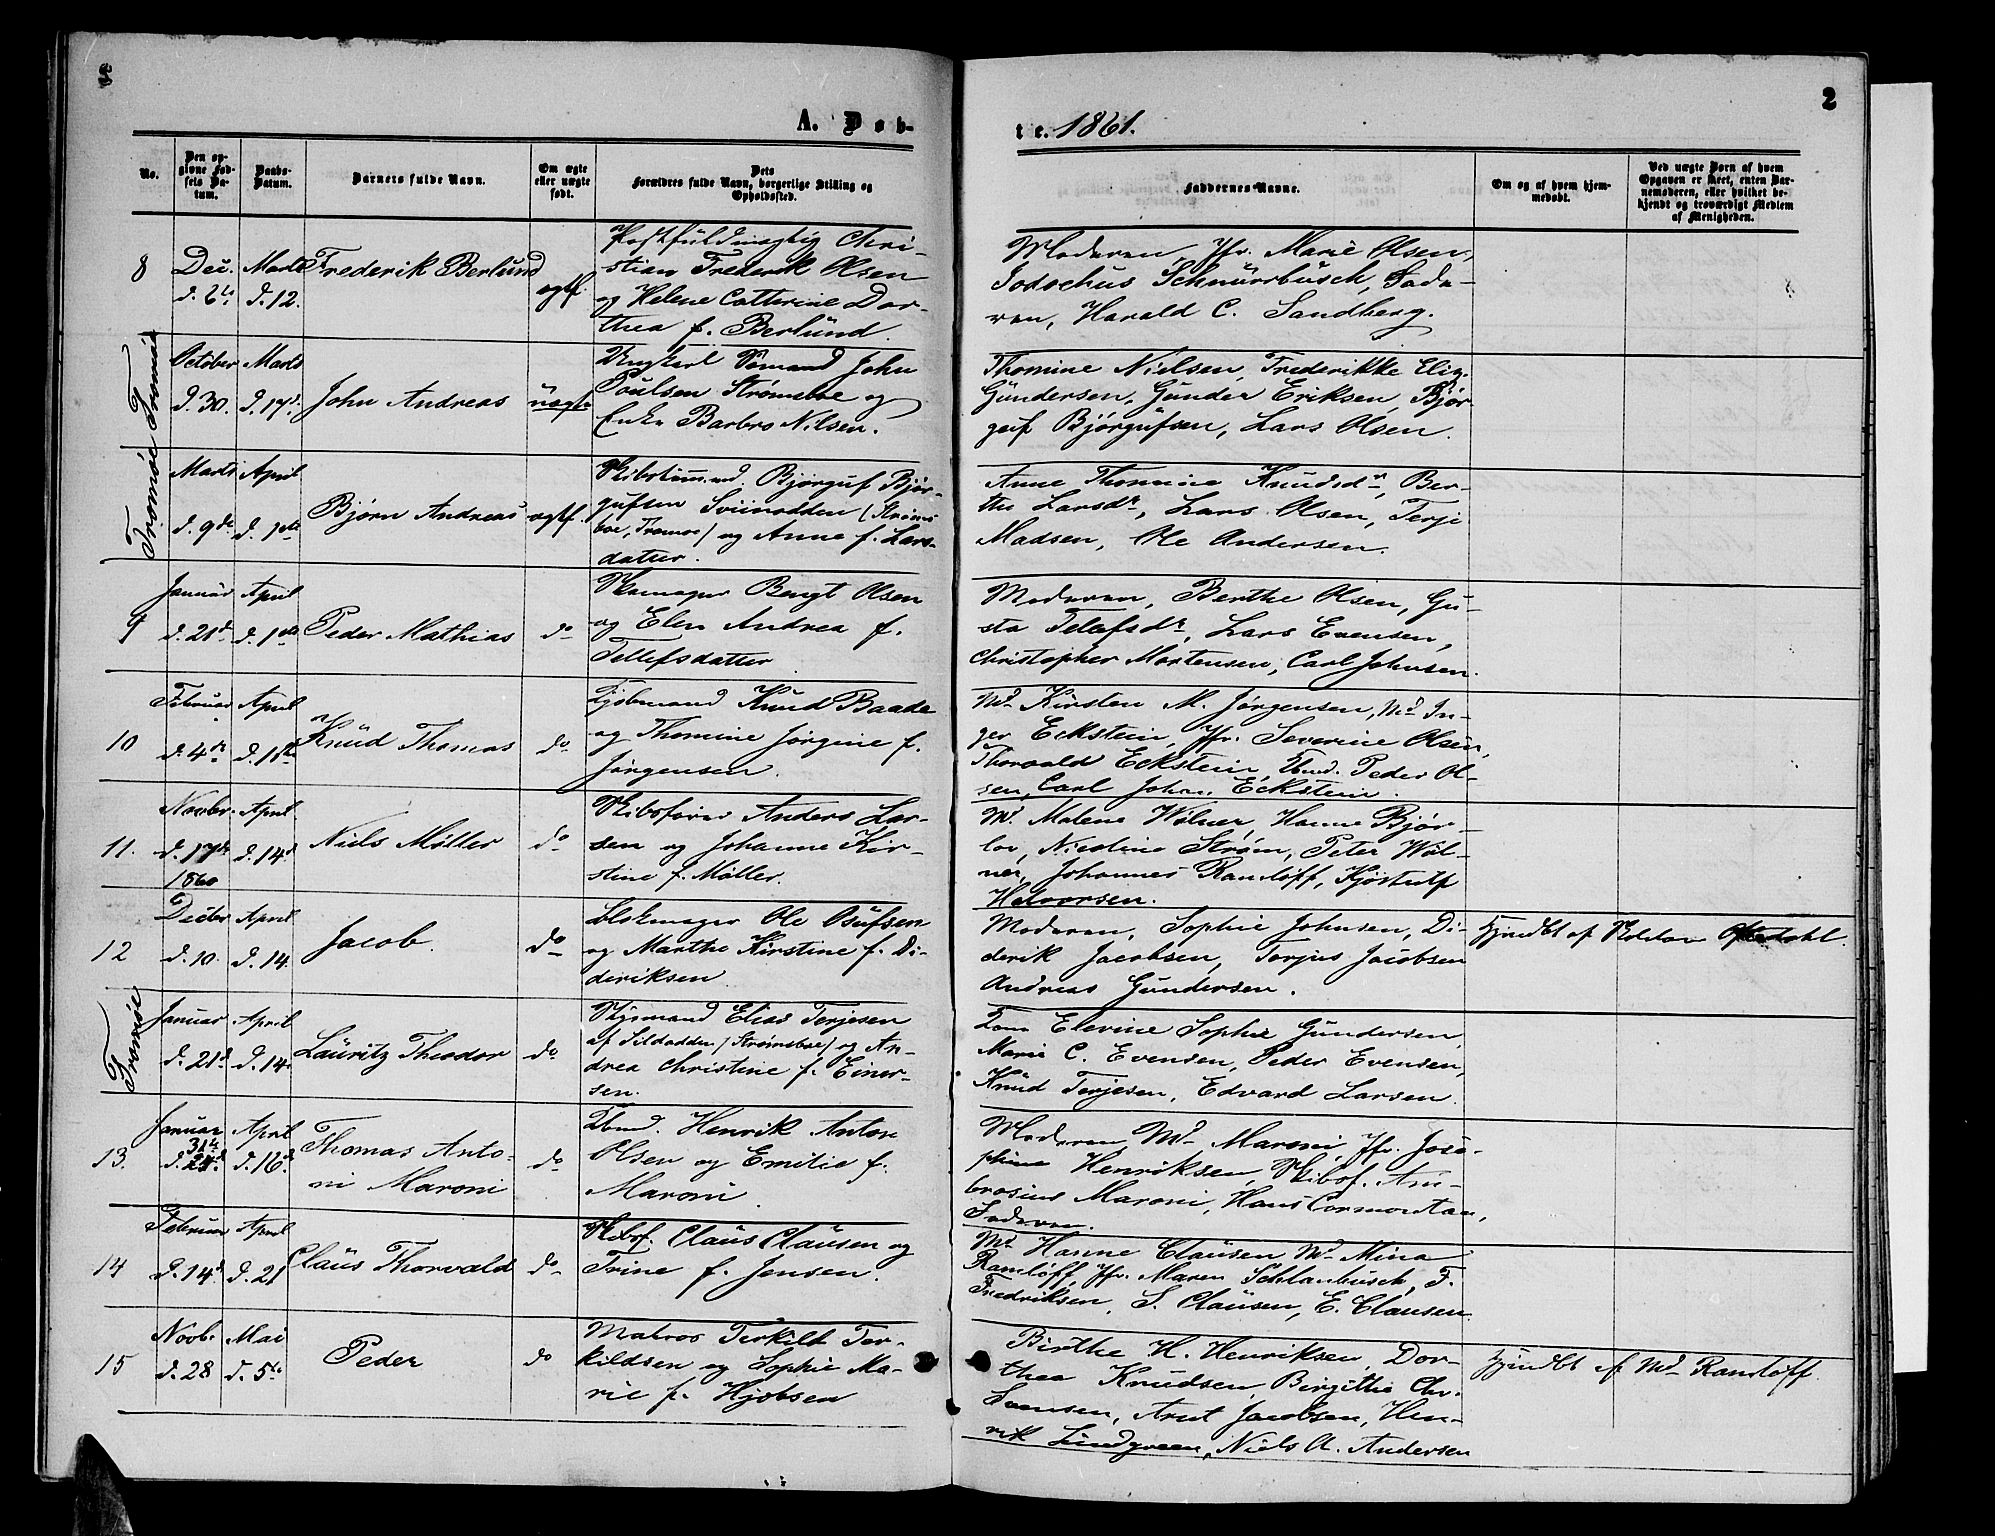 2
A. Døb-
te. 1861.
No.
Den op-
givne Fød-
sels Da-
tum.
Daabs-
Datum.
Barnets fulde Navn.
Om ægte
eller uægte
født.
Dets
Forældres fulde Navn, borgerlige Stilling og
Opholdssted.
Faddernes Navne.
Om og af hvem hjem-
medøbt.
Ved uægte Børn af hvem
Opgaven er skeet, enten Bar-
nemoderen, eller hvilket be-
kjendt og troværdigt Medlem
af Menigheden.
8
Dec.
d. 6te
Marts
d. 12.
Frederik Berlund
ægtf.
Postfuldmægtig Chri-
stian Frederik Olsen
og Helene Catterine Dor-
thea f. Berlund.
Moderen, Jfr. Marie Olsen,
Jodochus Schnürrbusch, Fade-
ren, Harald C. Sandberg.
Tromøe
October
d. 30.
Marts
d. 17d.
John Andreas
uægte
Ungkarl Sømand John
Poulsen Strømsboe og
Enke Barbro Nilsen.
Thomine Nielsen, Frederikke Elig.
Gundersen, Gunder Eriksen, Bjør-
guf Bjørgufsen, Lars Olsen.
Tromøe
Marts
d. 9de
April
d. 1ste
Bjørn Andreas
ægtf.
Skibstømmd. Bjørguf Bjør-
gufsen Sviinodden (Strøms-
boe, Tromøe) og Anne f. Lars-
datter.
Anne Thomine Knudsdr, Ber-
the Larsdr, Lars Olsen, Terje
Madsen, Ole Andersen.
9
Januar
d. 21d
April
d. 1ste
Peder Mathias
do
Skomager Bengt Olsen
og Elen Andrea f.
Tellefsdatter
Moderen, Berthe Olsen, Gu-
sta Telefsdr, Lars Evensen,
Christopher Mortensen, Carl Johnsen.
10
Februar
d. 4de
April
d. 1ste
Knud Thomas
do
Kjøbmand Knud Baade
og Thomine Jørgine f.
Jørgensen.
Md Kirsten M. Jørgensen, Md In-
ger Eckstein, Jfr. Severine Olsen,
Thorvald Eckstein, Peder Ol-
sen, Carl Johan Eckstein.
11.
Novbr.
d. 17de
1860
April
d. 14d
Niels Møller
do
Skibsfører Anders Lar-
sen og Johanne Kir-
stine f. Møller.
Md. Malene Wølner, Hanne Bjør-
lov, Nicoline Strøm, Peter Wøl-
ner, Johannes Ramløff, Kjøstulf
Halvorsen.
12
Decbr
d. 10.
April
d. 14.
Jacob.
do
Blokmager Ole Osufsen
og Marthe Kirstine f. Di-
deriksen
Moderen, Sophie Johnsen, Di-
derik Jacobsen, Torjus Jacobsen
Andreas Gundersen.
Hjemdbt af Rektor Oftedahl.
Tromøe
Januar
d. 21d
April
d. 14.
Lauritz Theodor
do
Styrmand Elias Terjesen
af Sildodden (Strømsboe) og An-
drea Christine f. Einer-
sen.
Elevine Sophie Gundersen,
Marie C. Evensen, Peder Evensen,
Knud Terjesen, Edvard Larsen.
13.
Januar
31te
d. 21d
April
d. 16d.
Thomas Anto-
ni Maroni
do
Henrik Anton
Olsen og Emilie f.
Maroni.
Moderen Md. Maroni, Jfr. Jose-
phine Henriksen, Skibsf. Am-
brosius Maroni, Hans Cormontan,
Faderen.
14
Februar
d. 14d
April
d. 21
Claus Thorvald
do
Skibsf. Claus Clausen og
Trine f. Jensen.
Md Hanne Clausen, Md. Mina
Ramløff, Jfr. Maren Schlanbusch, F.
Fredriksen, S. Clausen, E. Clausen
15
Novb.
d. 28
Mai
d. 5te
Peder
do
Matros Terkild Ter-
kildsen og Sophie Ma-
rie f. Hjobsen
Birthe H. Henriksen, Dor-
thea Knudsen, Birgitte Chr.
Svensen, Arnt Jacobsen, Hen-
rik Lindgreen, Niels A. Andersen
Hjemdbt af Md Ramløff.